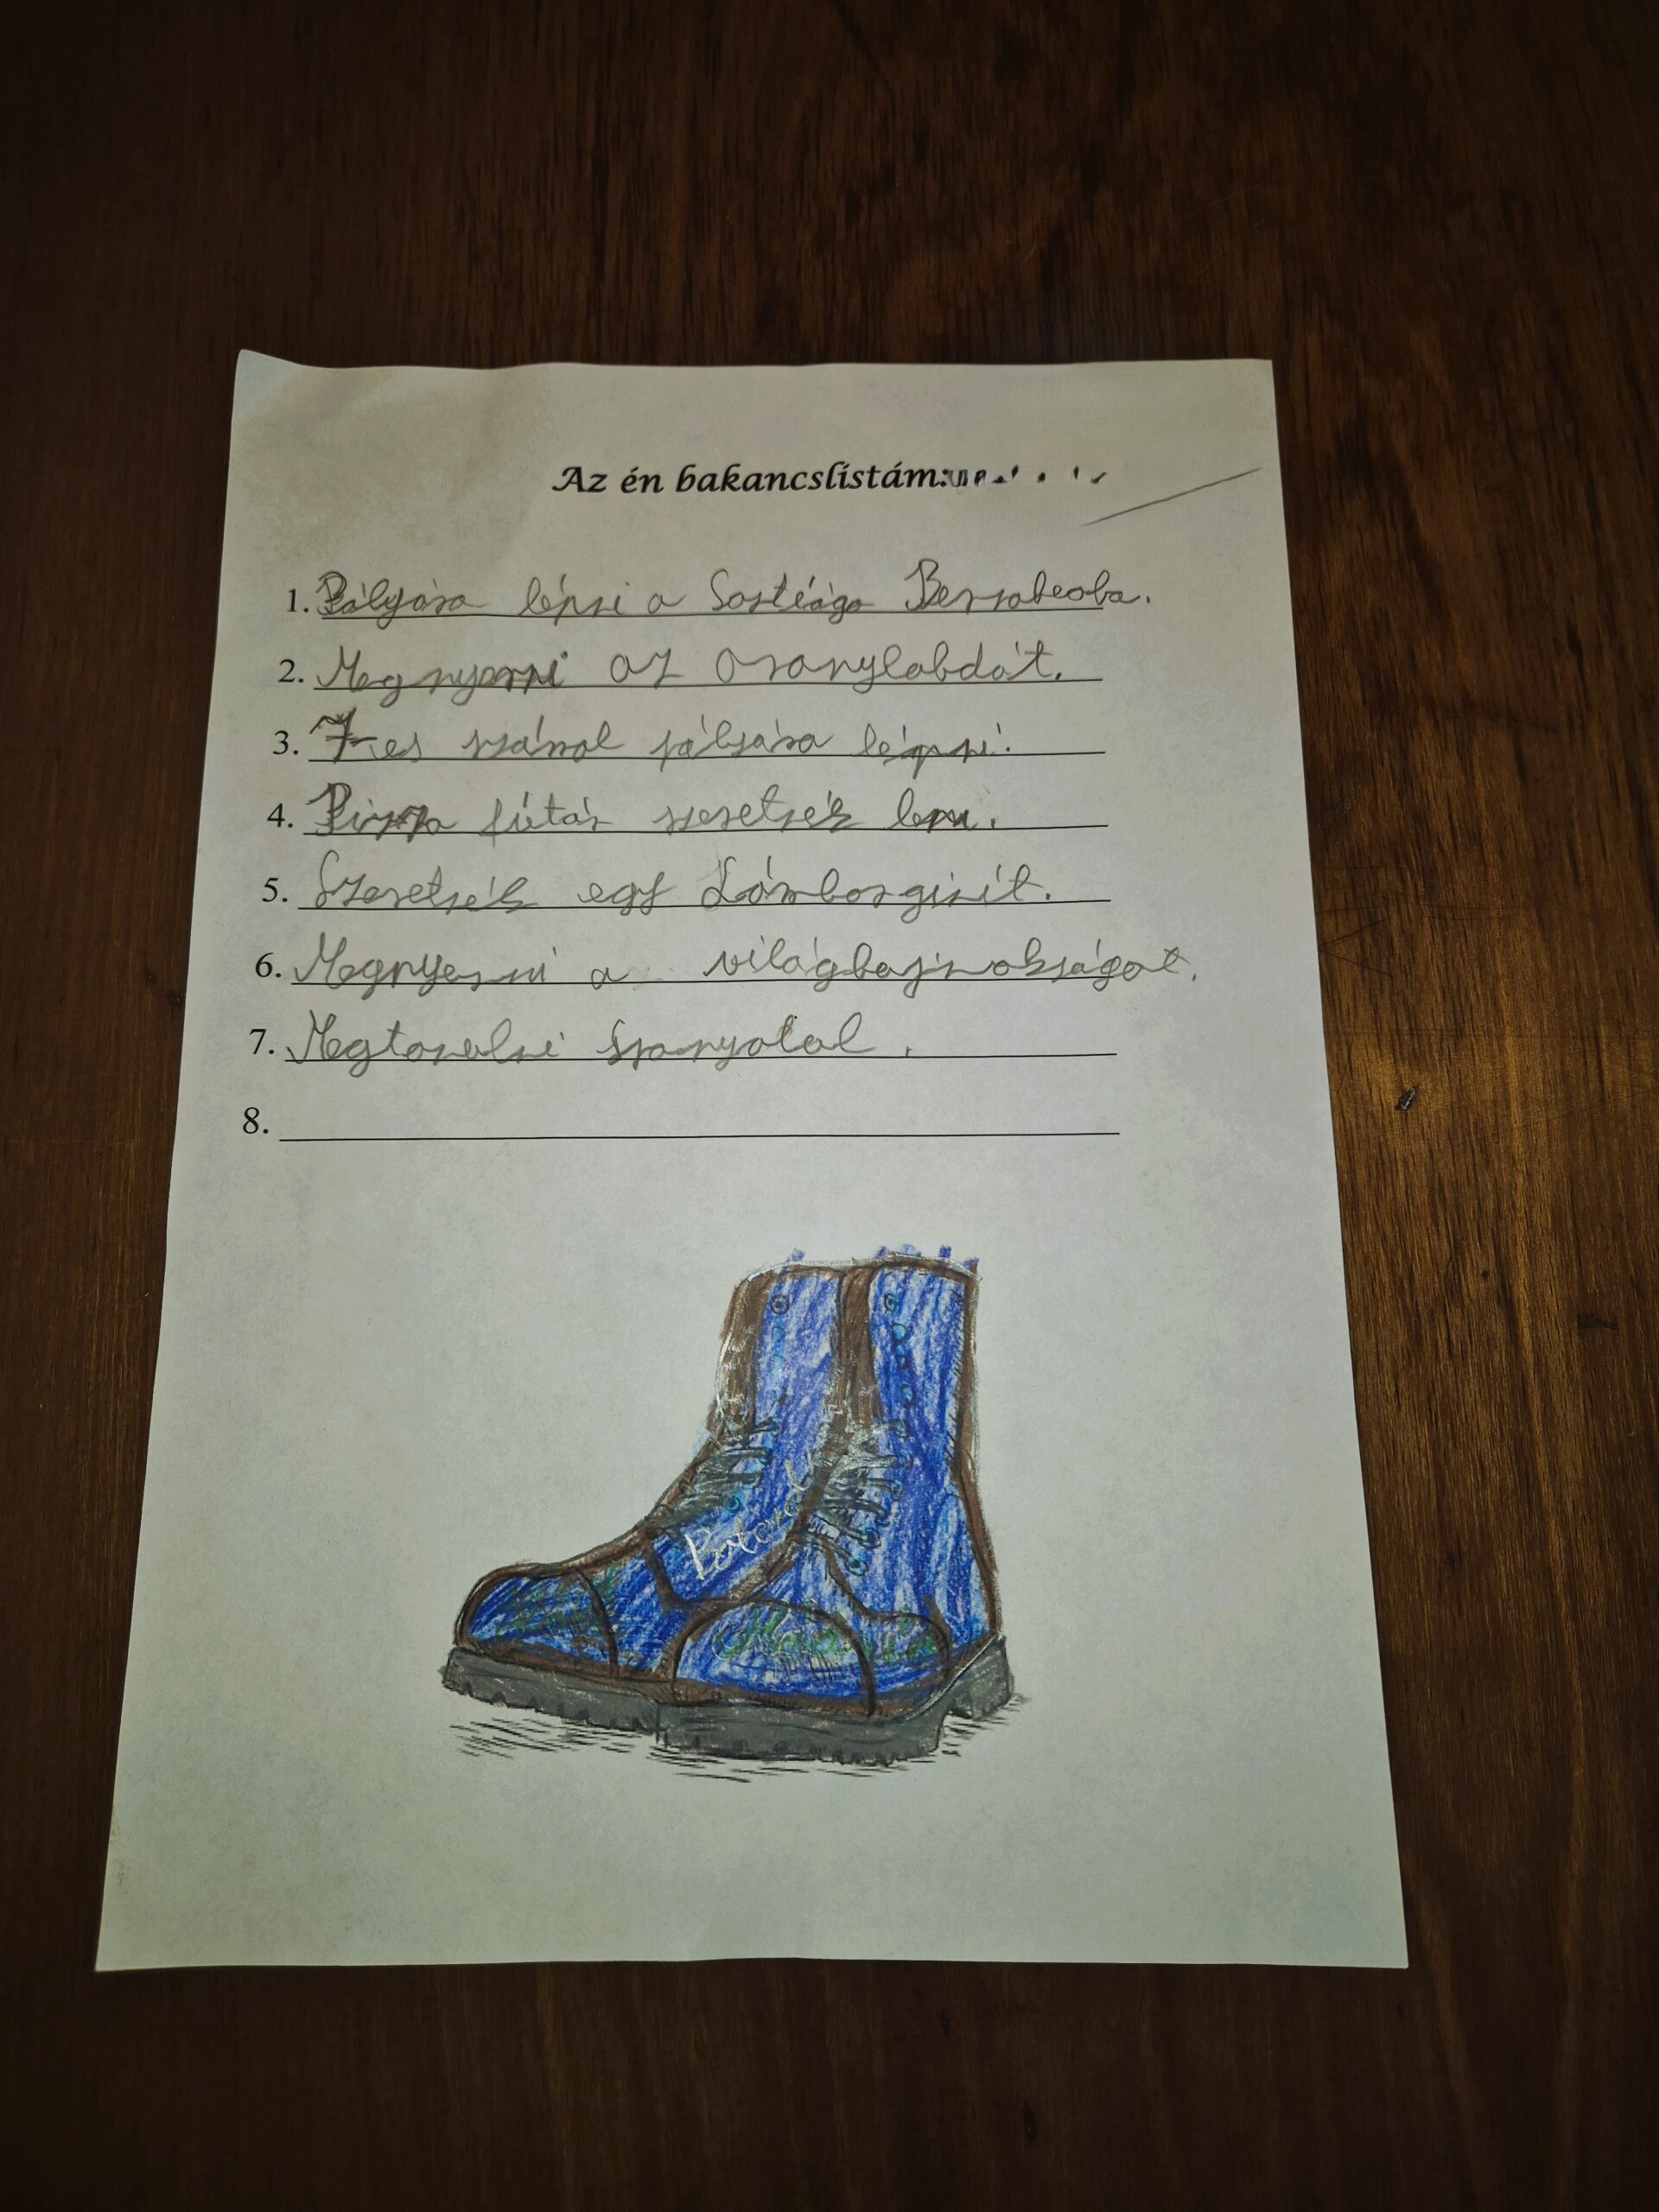 Az én bakancslistám:
1. Pályára lépni a Sostiágo Bernabeoba.
2. Megnyerni az aranylabdát.
3. 7-es számal pályára lépni.
4. Pizza futár szeretnék lenni.
5. Szeretnék egy Lámborginit.
6. Megnyerni a világbajnokságot.
7. Megtanulni spanyolul.
8.